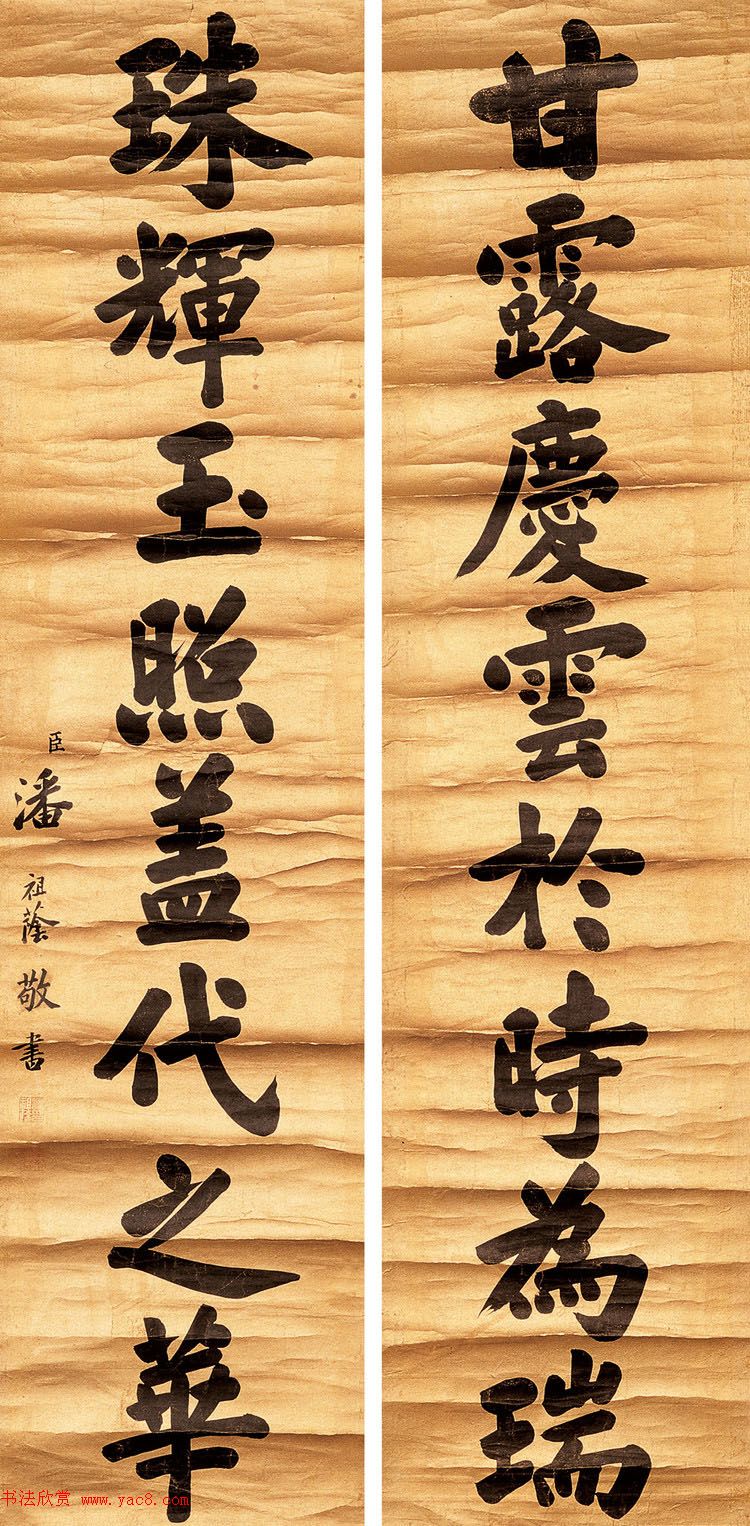 甘露慶雲於時為瑞
珠輝玉照盖代之華
臣潘祖蔭敬書
书法欣赏 www.yac8.com